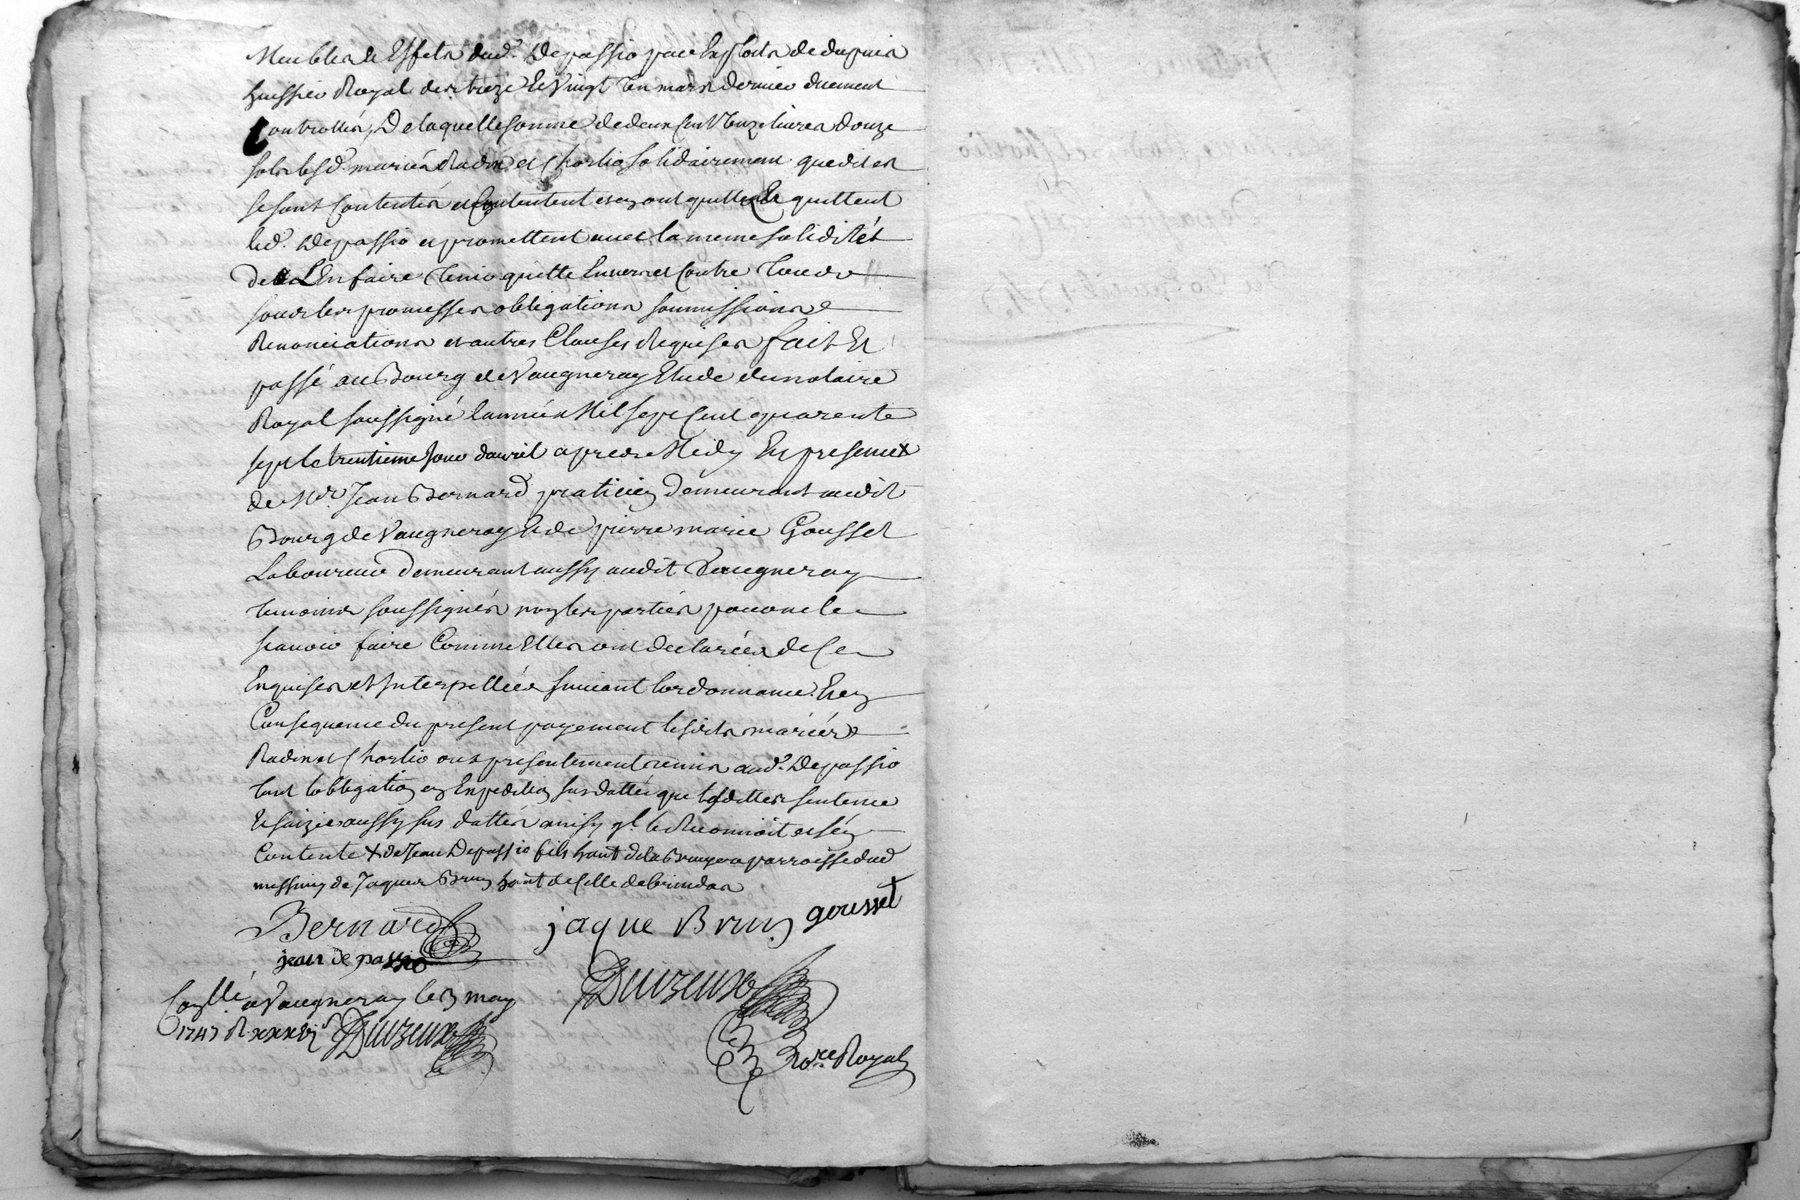 Meubles & Effets dud. Depassio par Exploits de dupuis
huissier Royal des treze & Vingt un mars dernier duement
Controllés, De laquelle somme de deux Cent onze livres douze
sols lesd. mariés Radix et Chorlio solidairement que dit est
se sont Contentés et Contentent et en ont quitté & quittent
led. Depassio et promettent avec la meme solidité
de L'En faire tenir quitte Envers et Contre tous
sous les promesses obligations soumissions &
Renonciations et autres Clauses Requises fait Et
passé au Bourg de Vaugneray Etude du notaire
Royal soussigné l'année Mil sept Cent quarente
sept le trentieme jour d'avril apres Midy En presence x
de Mr. Jean Bernard praticien demeurant audit
Bourg de Vaugneray Et de pierre marie Gousset
Laboureur demeurant aussy audit Vaugneray
temoins soussignés non les parties pour ne le
scavoir faire Comme Elles ont declarées de Ce
Enquises et Interpellées suivant l'ordonnance. Et en
Consequence du present payement lesdits mariés
Radix et Chorlio ont presentement remis aud. Depassio
tant l'obligation en Expedition sus dattée que lesdittes sentence
Et saizies aussy sus dattés ainsy qu'il le Reconnoit et s'en
Contente x de Jean Depassio fils hant de la Bruyere parroisse dud
messimy de Jaques Brun hant de Celle de brindas
Bernard jaque Brun gousset
jean de passio
Conllé a Vaugneray le 3 may
1747 R. xxxvi s Duizeux
Duizeux
Nore Royal